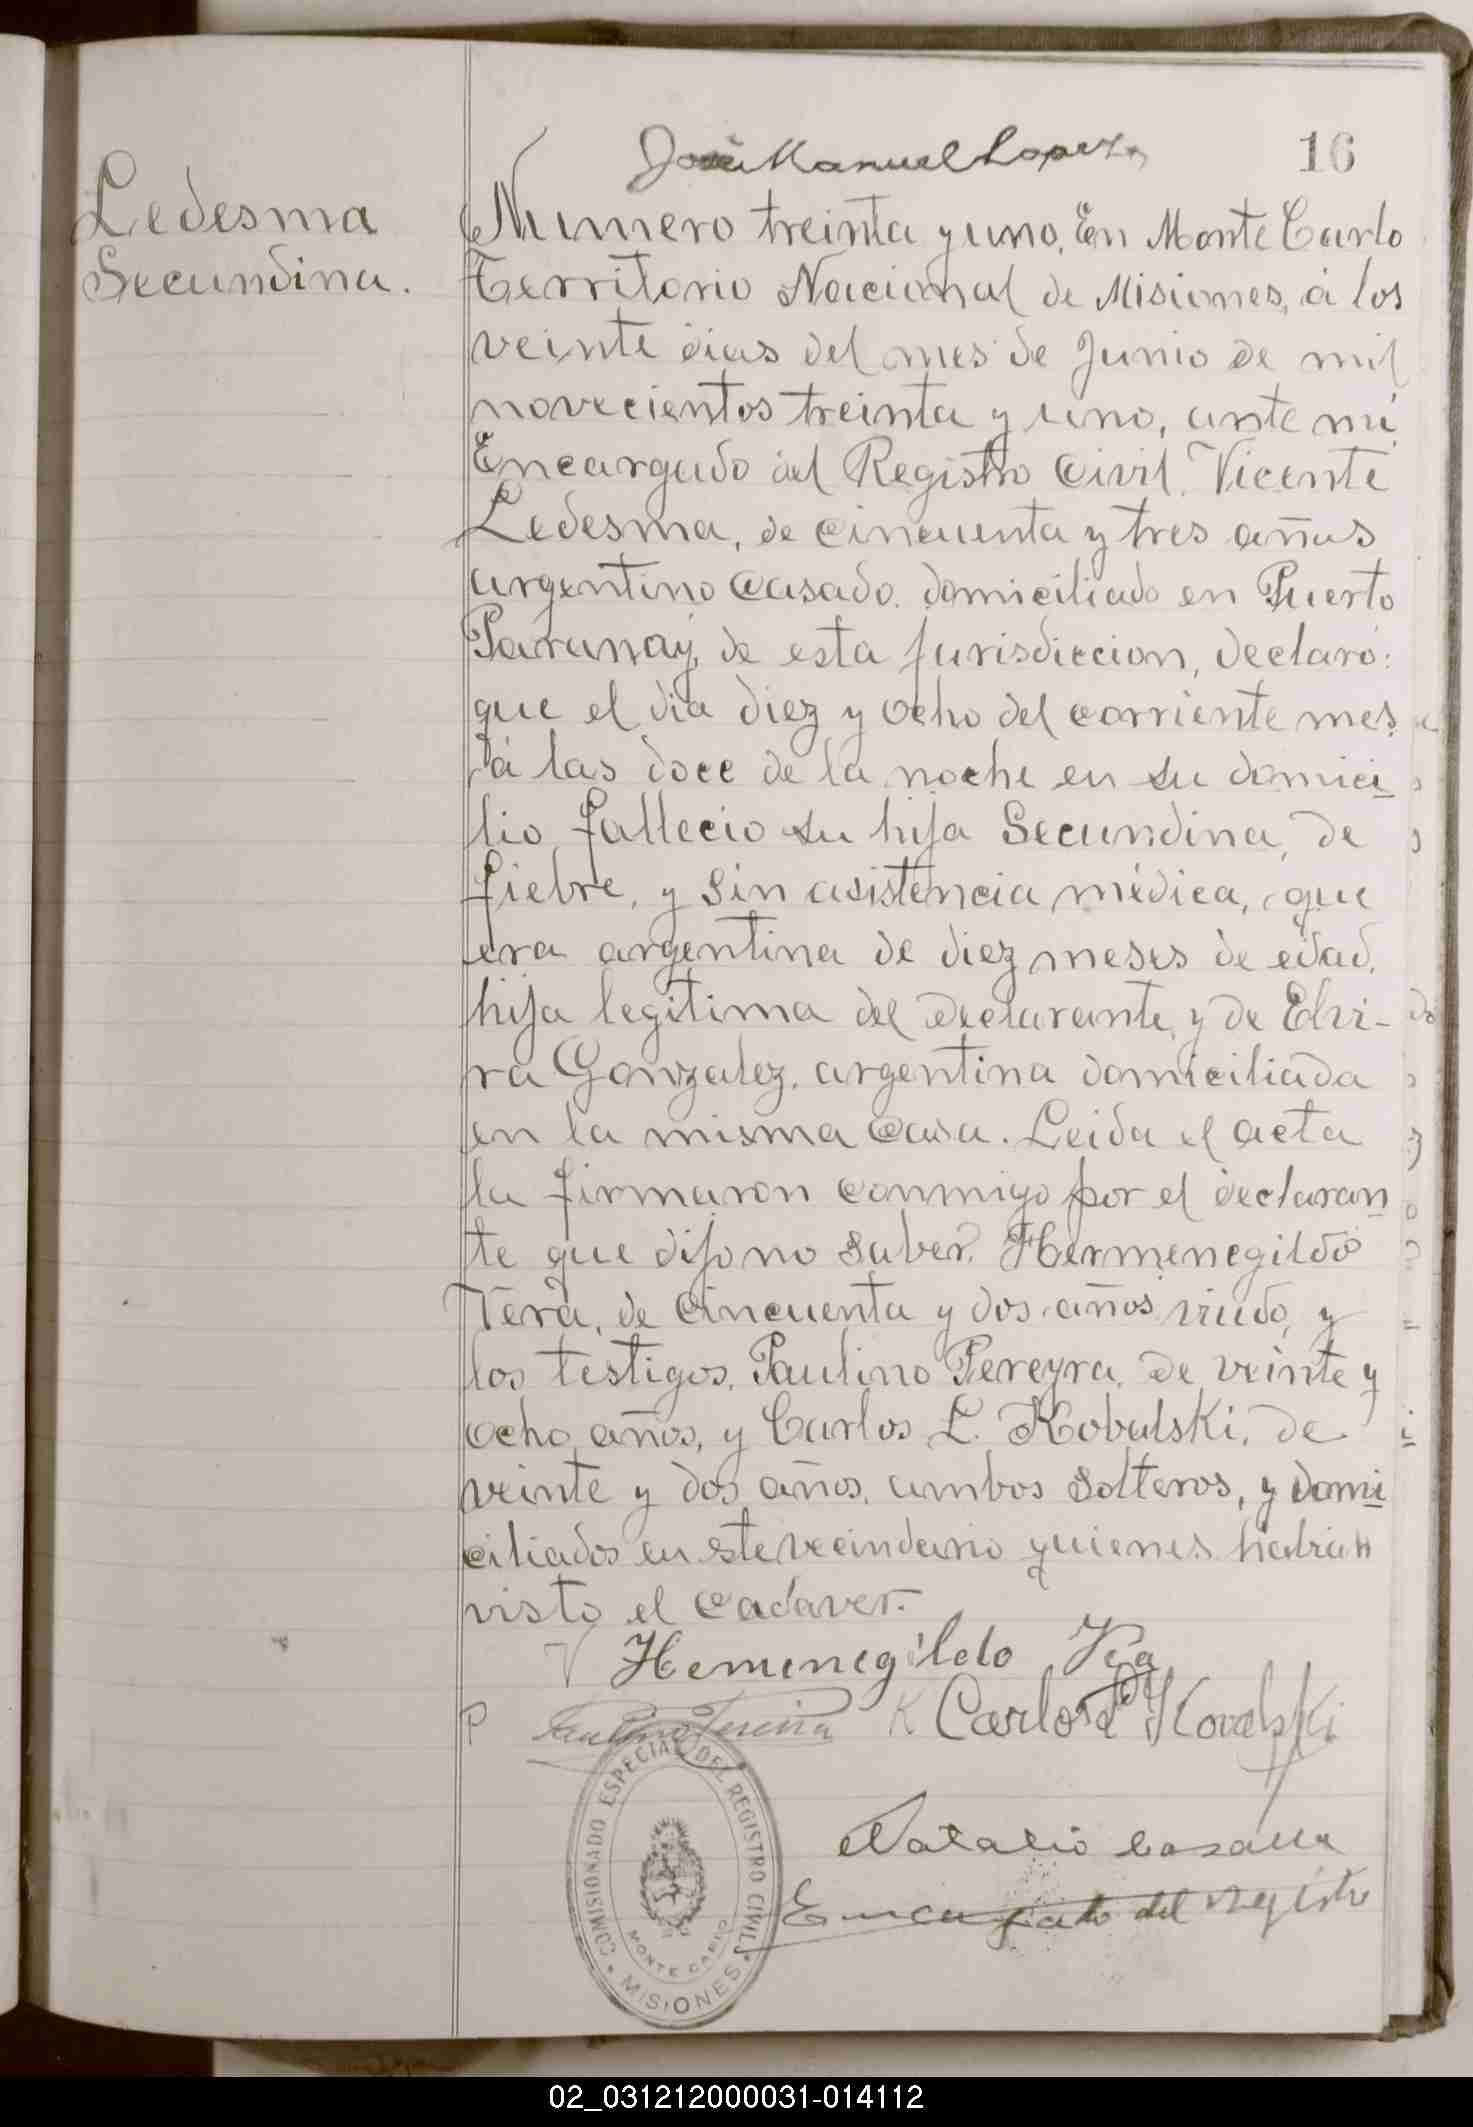 José Manuel Lopez
16
Ledesma
Secundina.
Numero treinta y uno, En Monte Carlo
Territorio Nacional de Misiones, á los
veinte dias del mes de Junio de mil
novecientos treinta y uno, ante mi
Encargado del Registro Civil, Vicente
Ledesma, de cincuenta y tres años
argentino casado, domiciliado en Puerto
Paranay, de esta jurisdiccion, declaró:
que el dia diez y ocho del corriente mes
á las doce de la noche en su domici
lio, fallecio su hija Secundina, de
fiebre, y sin asistencia médica, que
era argentina de diez meses de edad,
hija legitima del declarante, y de Elvi-
ra Gonzalez, argentina domiciliada
en la misma casa. Leida el acta
la firmaron conmigo por el declaran
te que dijo no saber, Hermenegildo
de cincuenta y dos años viudo, y
los testigos, Paulino Pereyra, de veinte y
ocho años, y Carlos L. Kobalski, de
veinte y dos años, ambos solteros, y domi
ciliados en este vecindario quienes habian
visto el cadaver.-
Hemenegildo
P K Carlos Kovalski
COMISIONADO ESPECIAL DEL REGISTRO CIVIL
MONTE CARLO
MISIONES
Natalio
Encargado del registro
02_031212000031-014112